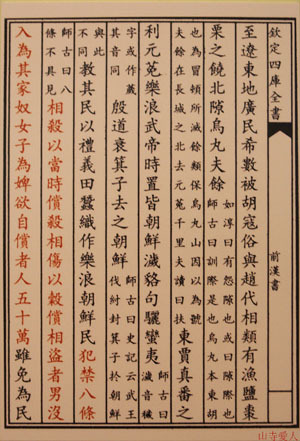 欽定四庫全書
前漢書
至遼東地廣民希數被胡寇俗與趙代相類有漁鹽棗
栗之饒北隙烏丸夫餘
如淳曰有怨隙也或曰隙際也
師古曰訓際是也烏丸本東胡
也為冒頓所滅餘類保烏丸山因以為號
夫餘在長城之北去元菟千里夫讀曰扶
東賈真番之
利元菟樂浪武帝時置皆朝鮮濊貉句驪蠻夷
師古曰
濊音穢
字或作薉
其音同
殷道衰箕子去之朝鮮
師古曰史記云武王
伐紂封箕子於朝鮮
與此
不同
教其民以禮義田蠶織作樂浪朝鮮民犯禁八條
師古曰八
條不具見
相殺以當時償殺相傷以穀償相盜者男沒
入為其家奴女子為婢欲自償者人五十萬雖免為民
山寺愛人